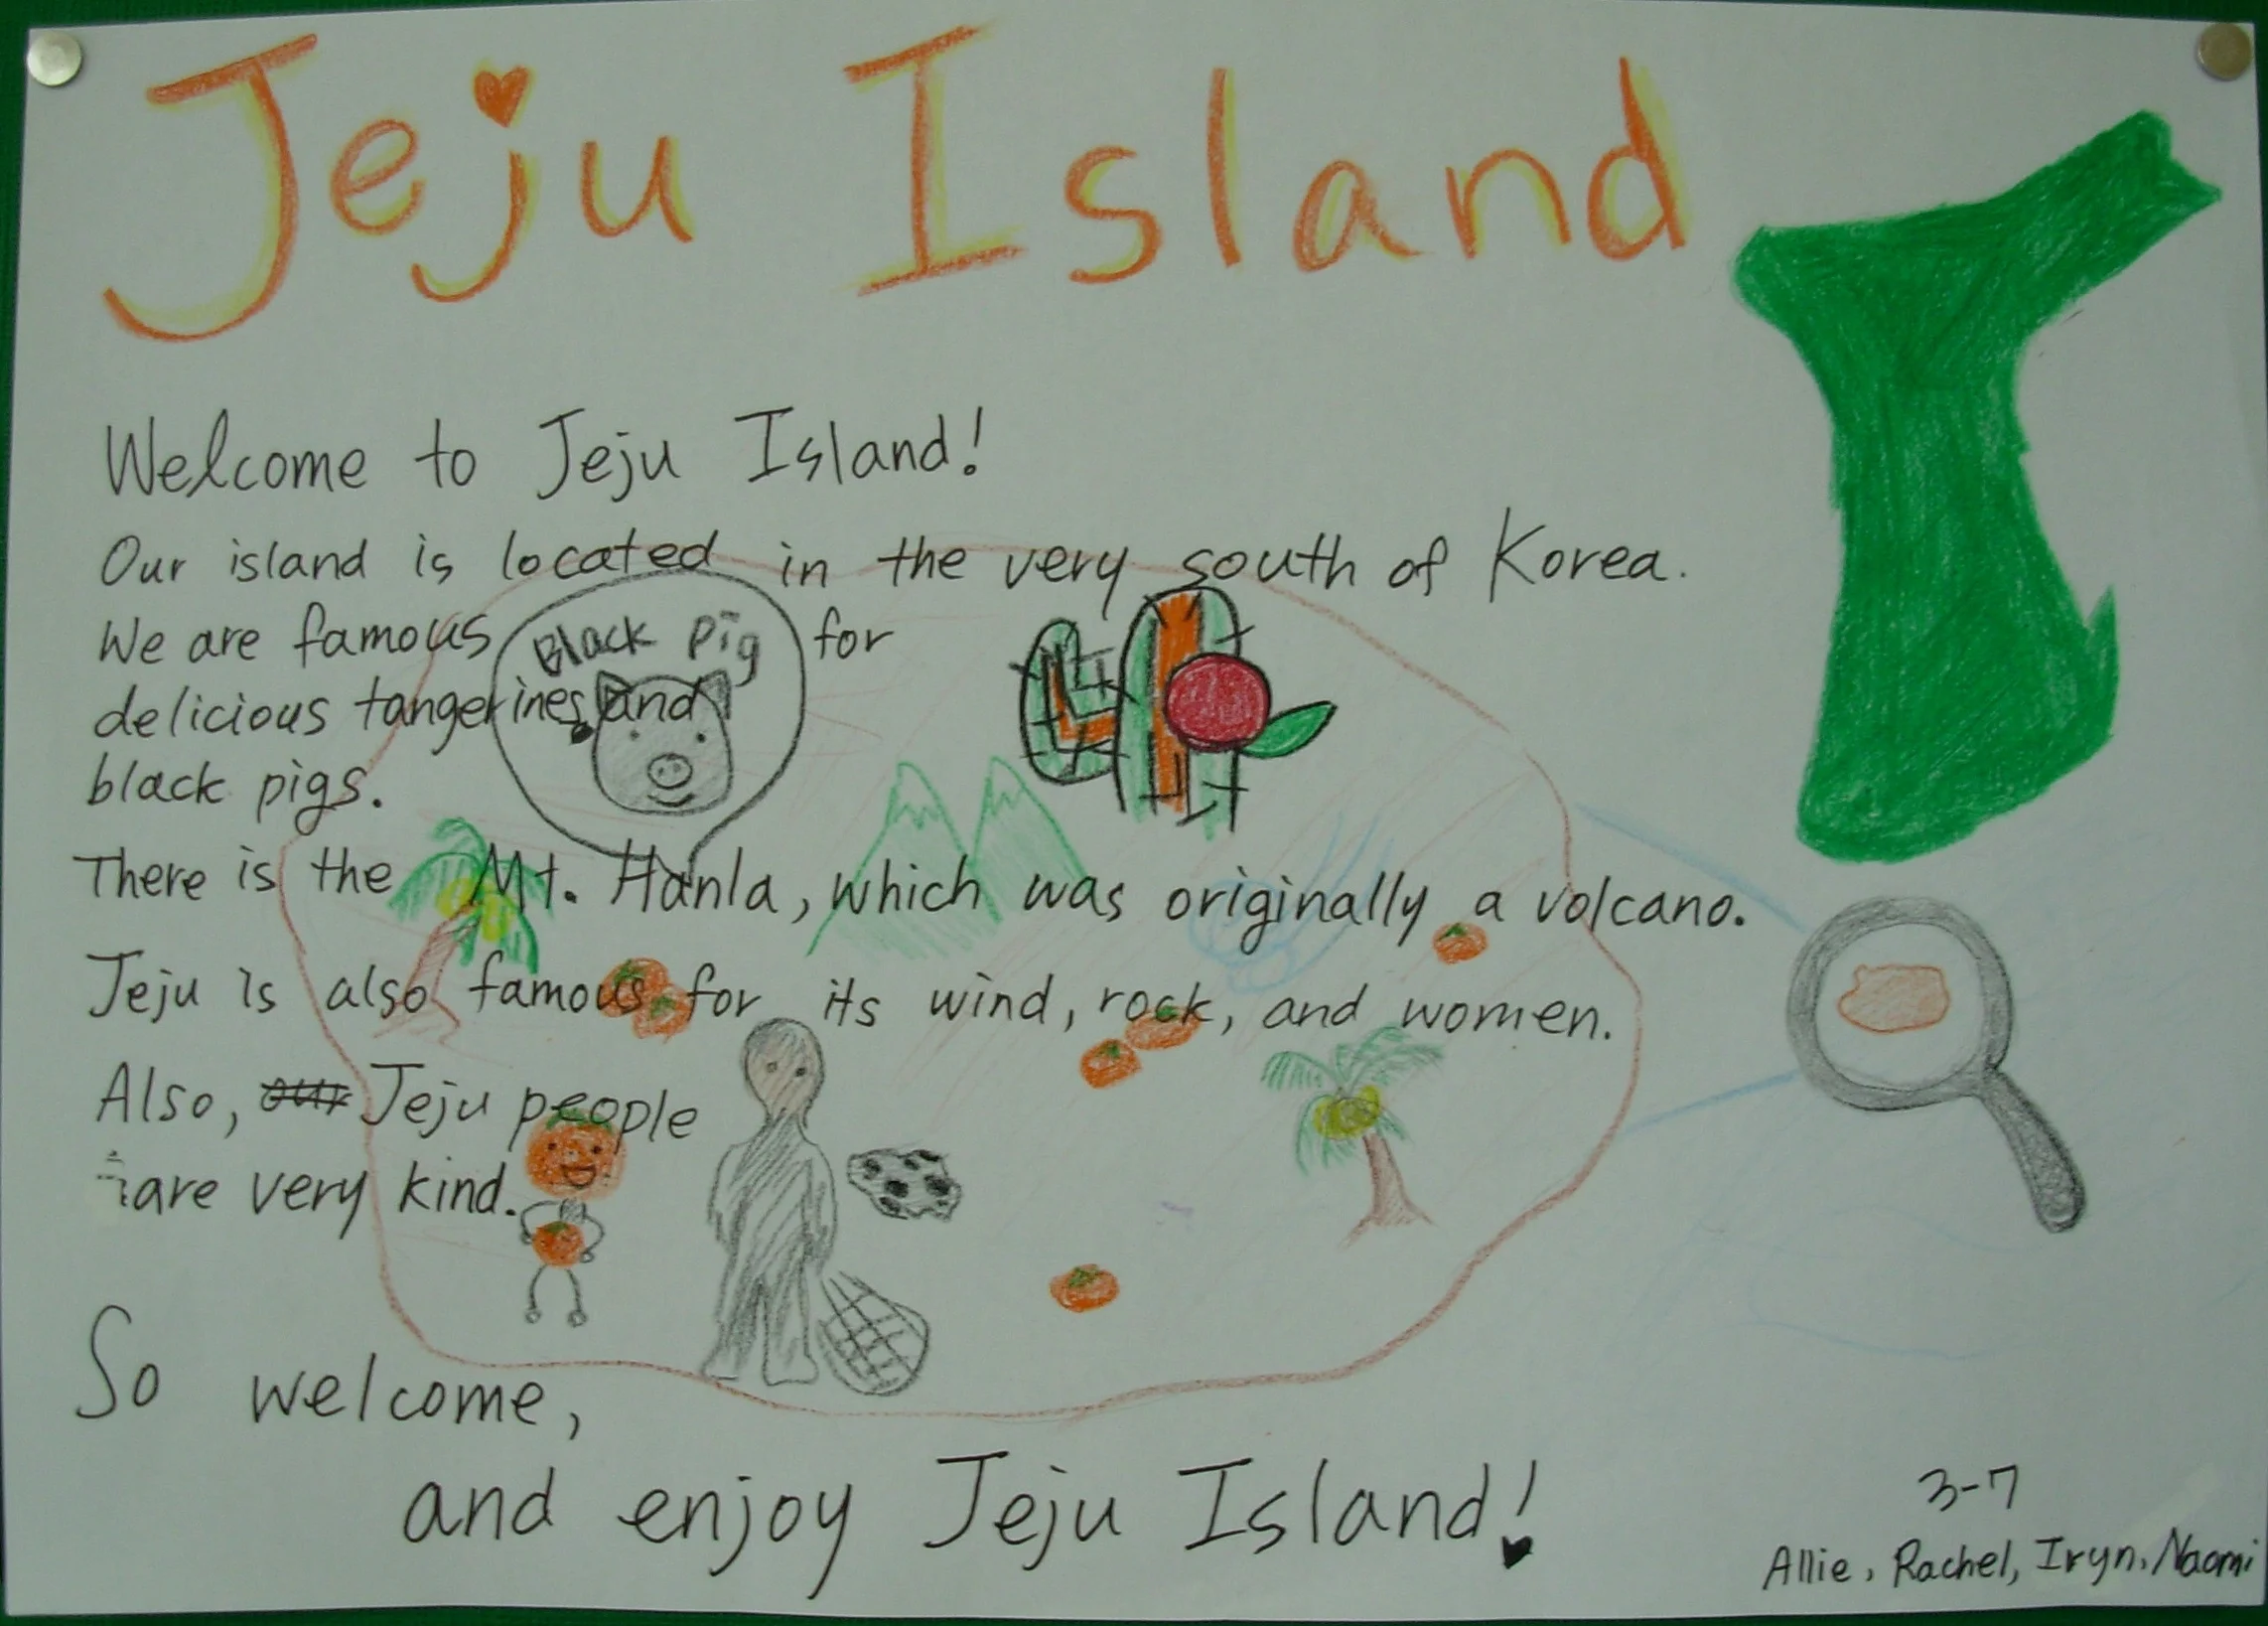 Jeju Island
Welcome to Jeju Island!
Our island is located in the very south of Korea.
We are famous for
Black pig
delicious tangerines, and
black pigs.
There is the Mt. Hanla, which was originally a volcano.
Jeju is also famous for its wind, rock, and women.
Also, our Jeju people
are very kind.
So welcome,
and enjoy Jeju Island!
3-7
Allie, Rachel, Iryn, Naomi